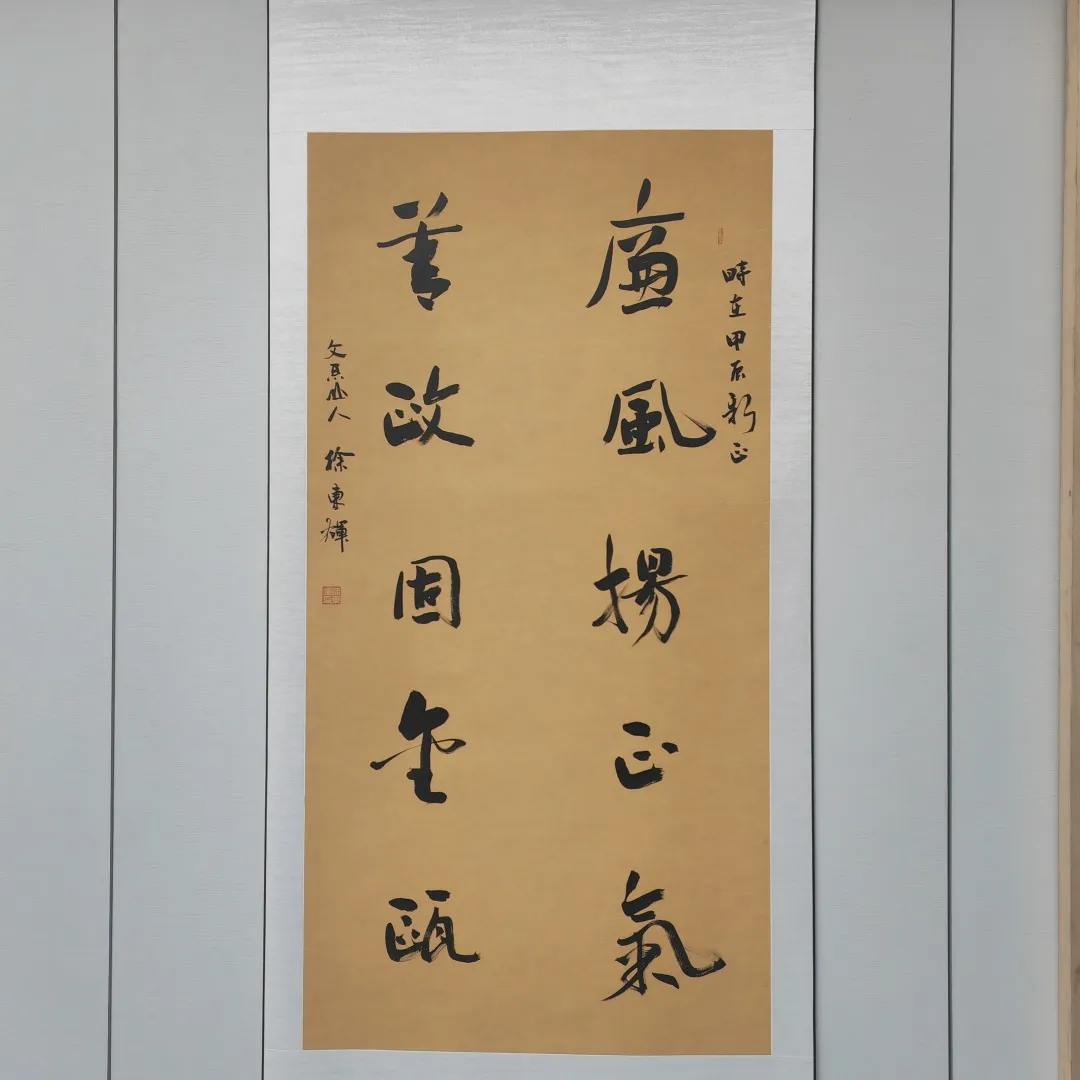 時在甲辰新正
廉風揚正氣
善政固金甌
文系山人 徐東輝